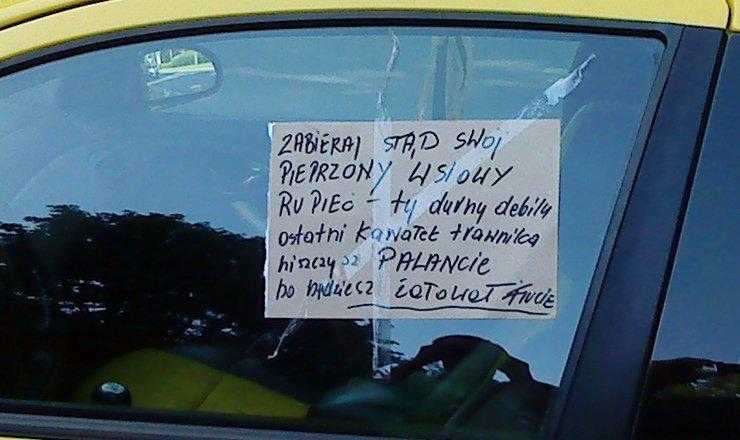 ZABIERAJ STĄD SWÓJ
PIEPRZONY WSIOWY
RUPIEĆ - ty durny debilu
ostatni kawałek trawnika
niszczysz PALANCIE
bo będziesz żałował FIUCIE